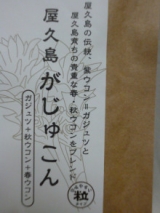 屋久島の伝統、紫ウコン=ガジュツと
屋久島育ちの貴重な春・秋ウコンをブレンド
屋久島
がじゅこん
ガジュツ+秋ウコン+春ウコン
粒